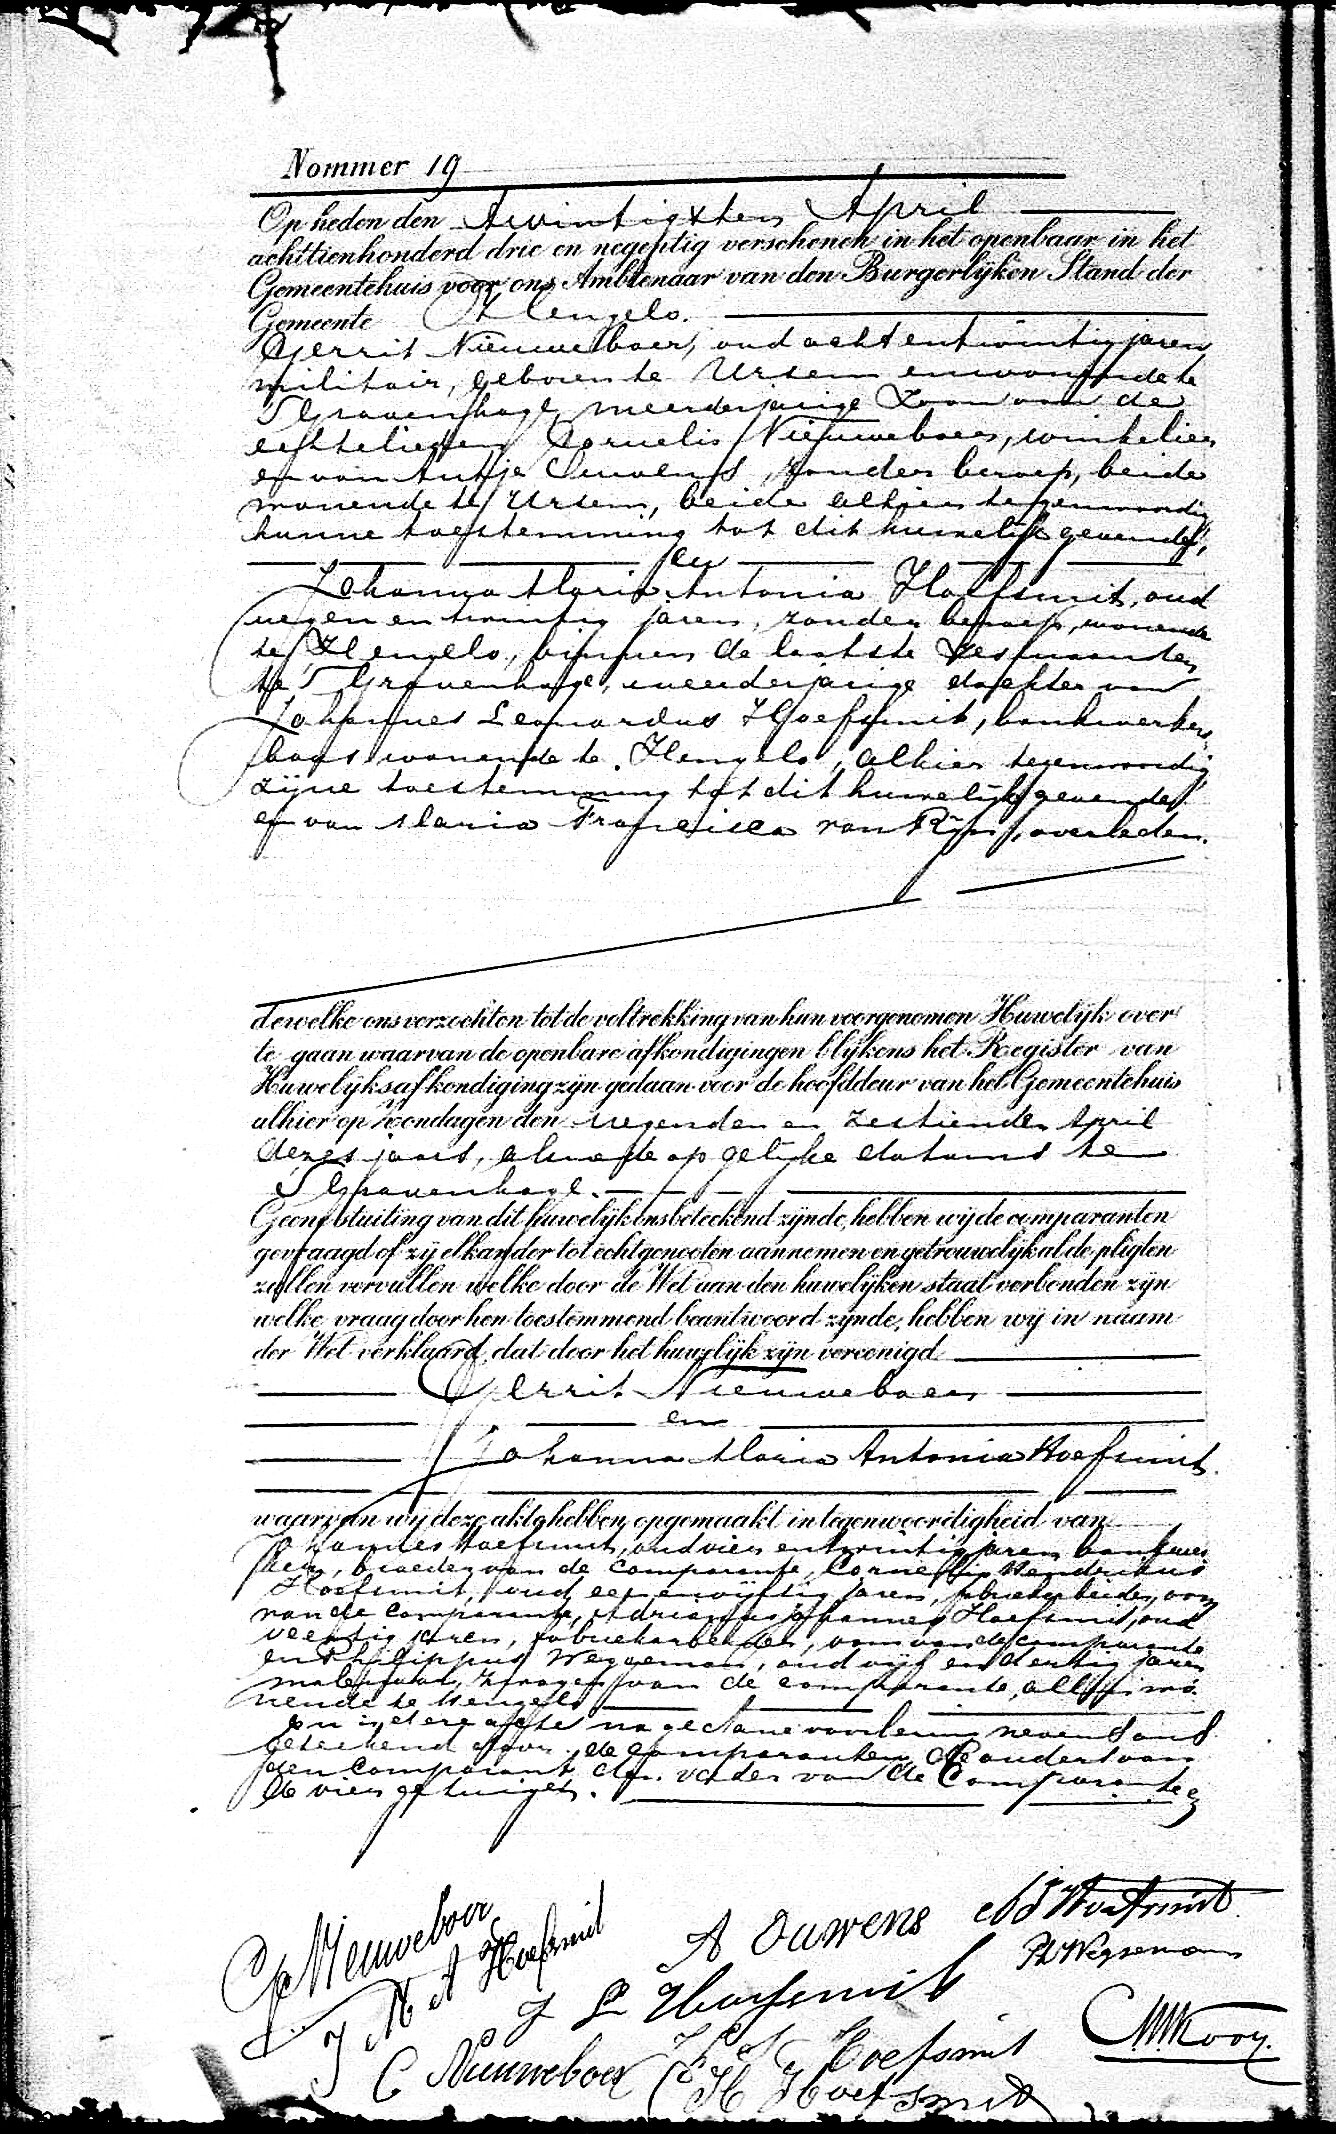 Nommer 19
Op heden den twintigsten April
achttienhonderd drie en negentig verschenen in het openbaar in het
Gemeentehuis voor ons Ambtenaar van den Burgerlijken Stand der
Gemeente Hengelo.
Gerrit Nieuweboer, oud acht entwintig jaren,
militair, geboren te Ursem en wonende te
's Gravenhage, meerderjarige Zoon van de
echtelieden Cornelis Nieuweboer, winkelier
en van Antje Ouwens, zonder beroep, beide
wonende te Ursem, beide alhier tegenwoordig
hunne toestemming tot dit huwelijk gevende,
en
Johanna Maria Antonia Hoefsmit, oud
negen en twintig jaren, zonder beroep, wonende
te Hengelo, binnen de laatste zes maanden
te 's Gravenhage, meerderjarige dochter van
Johannes Leonardus Hoefsmit, bankwerkers
baas wonende te Hengelo, alhier tegenwoordig
zijne toestemming tot dit huwelijk gevende,
en van Maria Francisca van Rijn, overleden.
dewelke ons verzochten tot de voltrekking van hun voorgenomen Huwelijk over
te gaan waarvan de openbare afkondigingen blijkens het Register van
Huwelijksafkondiging zijn gedaan voor de hoofddeur van het Gemeentehuis
alhier op Zondagen den negenden en zestienden April
dezes jaars, alsmede op gelijke datums te
's Gravenhage.
Geene stuiting van dit huwelijk ons beteekend zijnde, hebben wij de comparanten
gevraagd of zij elkander tot echtgenooten aannemen en getrouwelijk al de pligten
zullen vervullen welke door de Wet aan den huwelijken staat verbonden zijn
welke vraag door hen toestemmend beantwoord zijnde, hebben wij in naam
der Wet verklaard, dat door het huwelijk zijn vereenigd
Gerrit Nieuweboer
en
Johanna Maria Antonia Hoefsmit.
waarvan wij deze akte hebben opgemaakt in tegenwoordigheid van
Johannes Hoefsmit, oud vier entwintig jaren bankwer
ker, broeder van de comparante, Cornelis Hendrikus
Hoefsmit, oud een en vijftig jaren, fabriekarbeider, oom
van de comparante, Adrianus Johannes Hoefsmit, oud
veertig jaren, fabriekarbeider, oom van de comparante
en Philippus Weggeman, oud vijf en dertig jaren
zwager van de comparante, allen wo
nende te Hengelo
En is deze akte na gedane voorlezing nevens ons
geteekend door de comparanten, de ouders van
den comparant, den vader van de Comparante en
de vier getuigen.
G Nieuweboer
J M A Hoefsmit
A Ouwens
A J Hoefsmit
Ph Weggeman
J L Hoefsmit
C Nieuweboer
J Hoefsmit
C H Hoefsmit